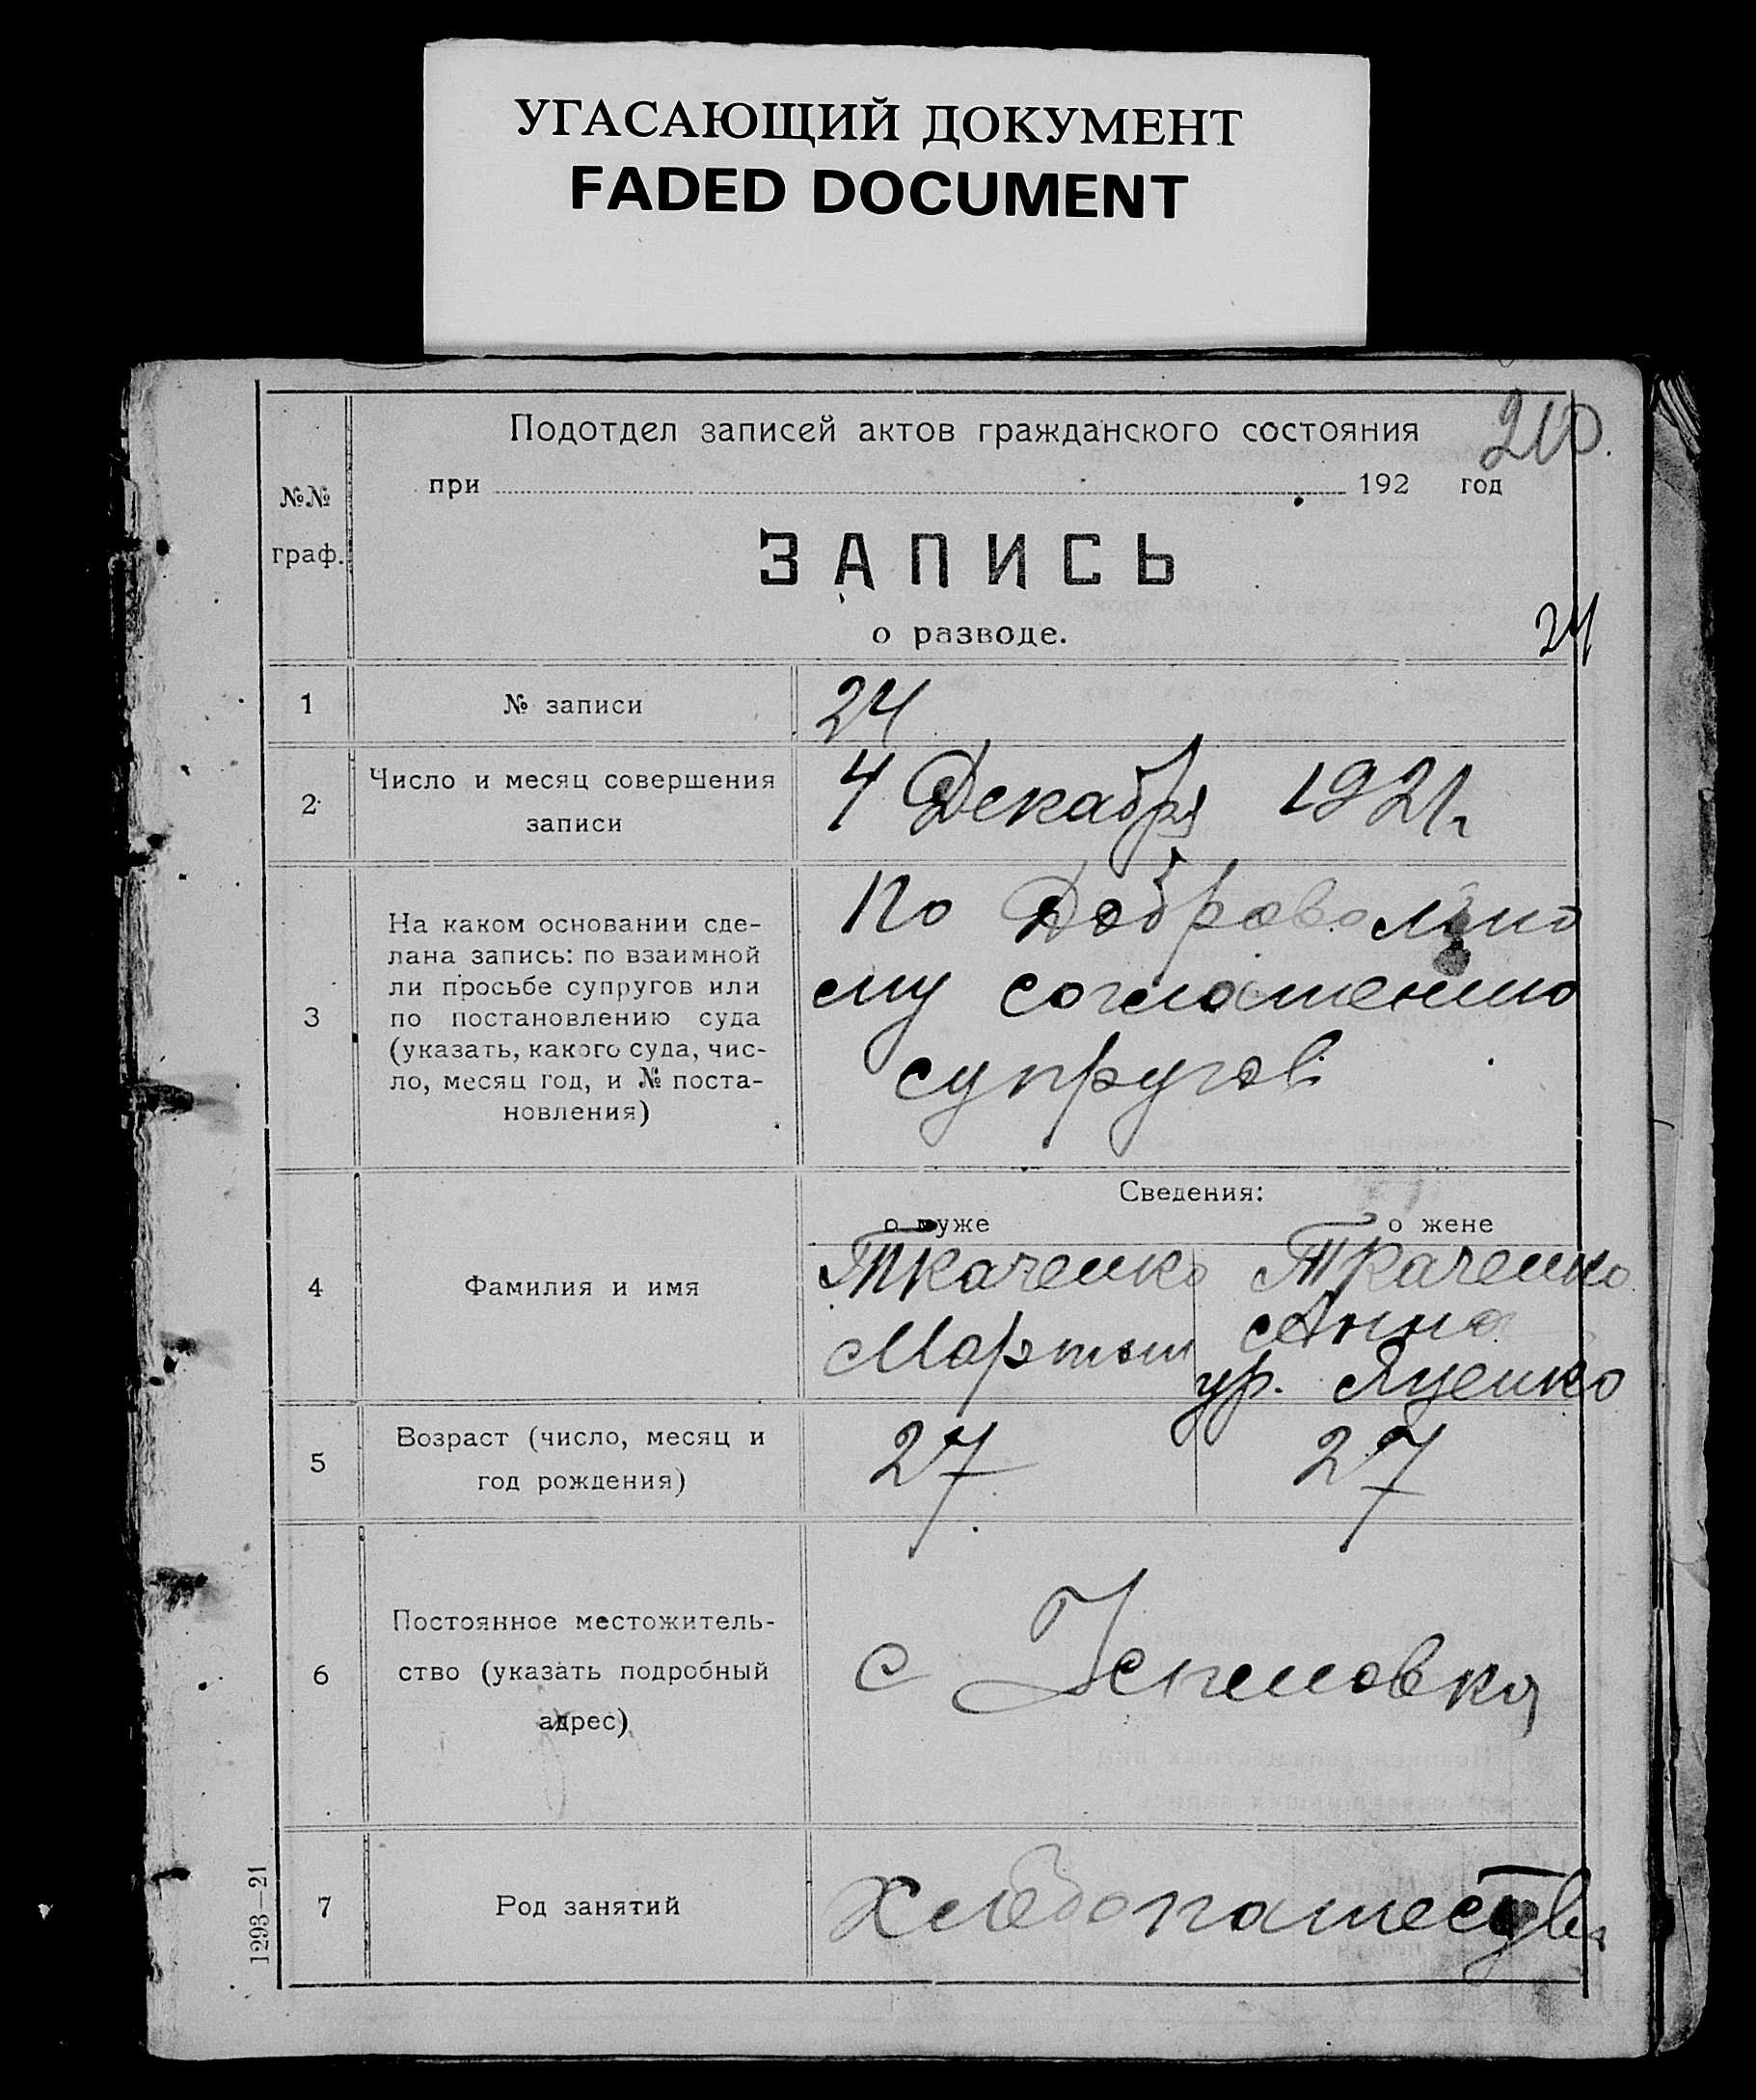 УГАСАЮЩИЙ ДОКУМЕНТ
FADED DOCUMENT
210.
Подотдел записей актов гражданского состояния
при 192 год
№№
граф.
ЗАПИСЬ
о разводе.
24
1 № записи 24
2 Число и месяц совершения
записи
4 Декабря 1921 г.
3 На каком основании сде-
лана запись: по взаимной
ли просьбе супругов или
по постановлению суда
(указать, какого суда, чис-
ло, месяц год, и № поста-
новления)
По Доброволно
му соглашению
супругов
Сведения:
о муже о жене
4 Фамилия и имя
Ткаченко
Мартын
Ткаченко
Анна
ур. Яценко
5 Возраст (число, месяц и
год рождения)
27 27
6 Постоянное местожитель-
ство (указать подробный
адрес)
с Успеновка
7 Род занятий
Хлебопашество
1293—21